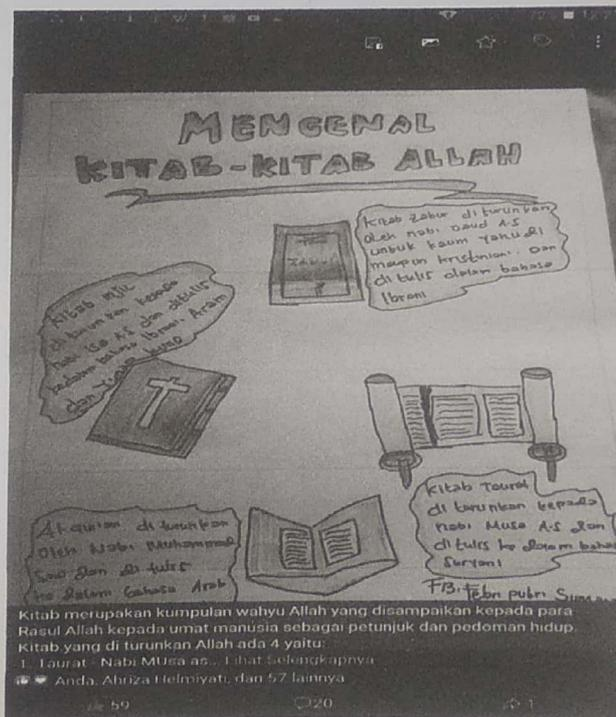 MENGENAL
KITAB-KITAB ALLAH
Kitab Zabur di turunkan
oleh nabi Daud A.S
untuk kaum Yahudi
maupun kristiniani. Dan
di tulis dalam bahasa
Ibrani
Zabur
Kitab injil
di turunkan kepada
nabi Isa A.S dan ditulis
kedalam bahasa Ibrani, Aram
dan
Kitab Taurat
di turunkan kepada
nabi Musa A.S dan
di tulis ke dalam bahasa
Suryani
Al-quran di turunkan
oleh Nabi Muhammad
Saw dan di tulis
ke dalam bahasa Arab
FB: Febri putri
Kitab merupakan kumpulan wahyu Allah yang disampaikan kepada para
Rasul Allah kepada umat manusia sebagai petunjuk dan pedoman hidup.
Kitab yang di turunkan Allah ada 4 yaitu:
1. Taurat - Nabi MUsa as... Lihat Selengkapnya
Anda, Ahriza Helmiyati, dan 57 lainnya
59
20
1